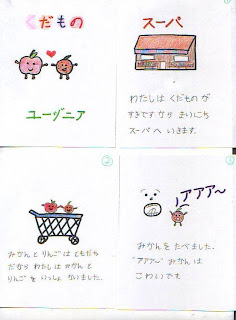 くだもの
ユーヅニア
スーパ
わたしは くだものが
すきですから まいにち
スーパへ いきます。
②
みかんと りんごは ともだち
だから わたしは みかんと
りんごを いっしょ かいました。
③
アアア〜
みかんを たべました。
"アアア〜" みかんは
こわいでも